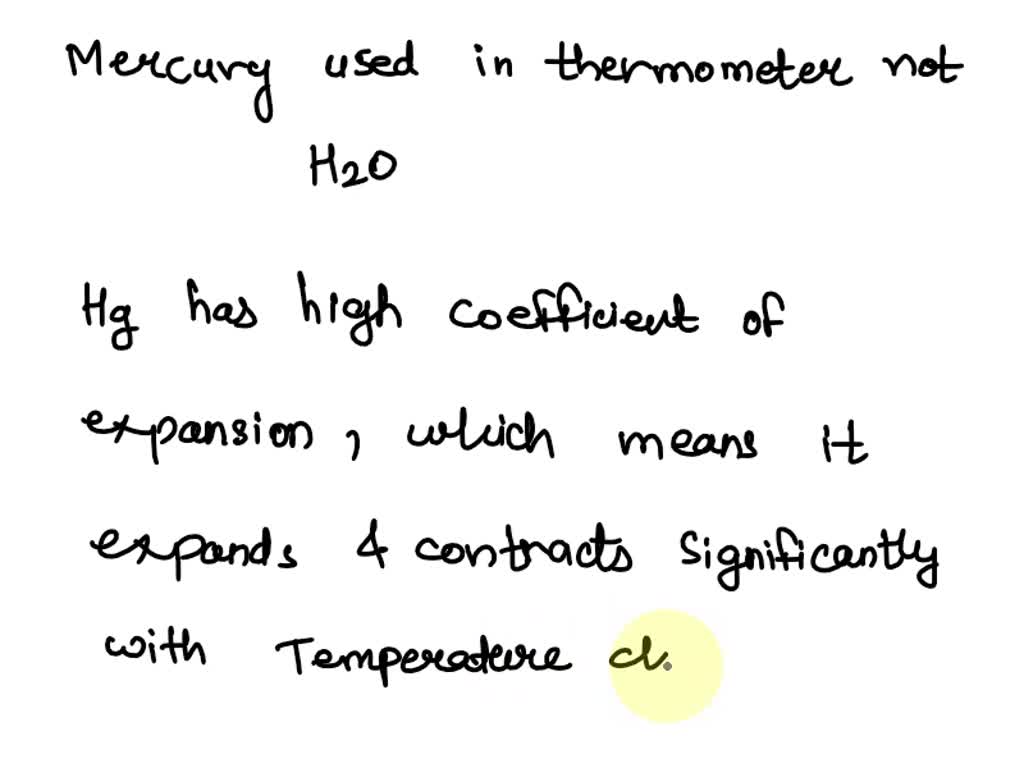 Mercury used in thermometer not
H2O
Hg has high coefficient of
expansion, which means it
expands & contracts significantly
with Temperature